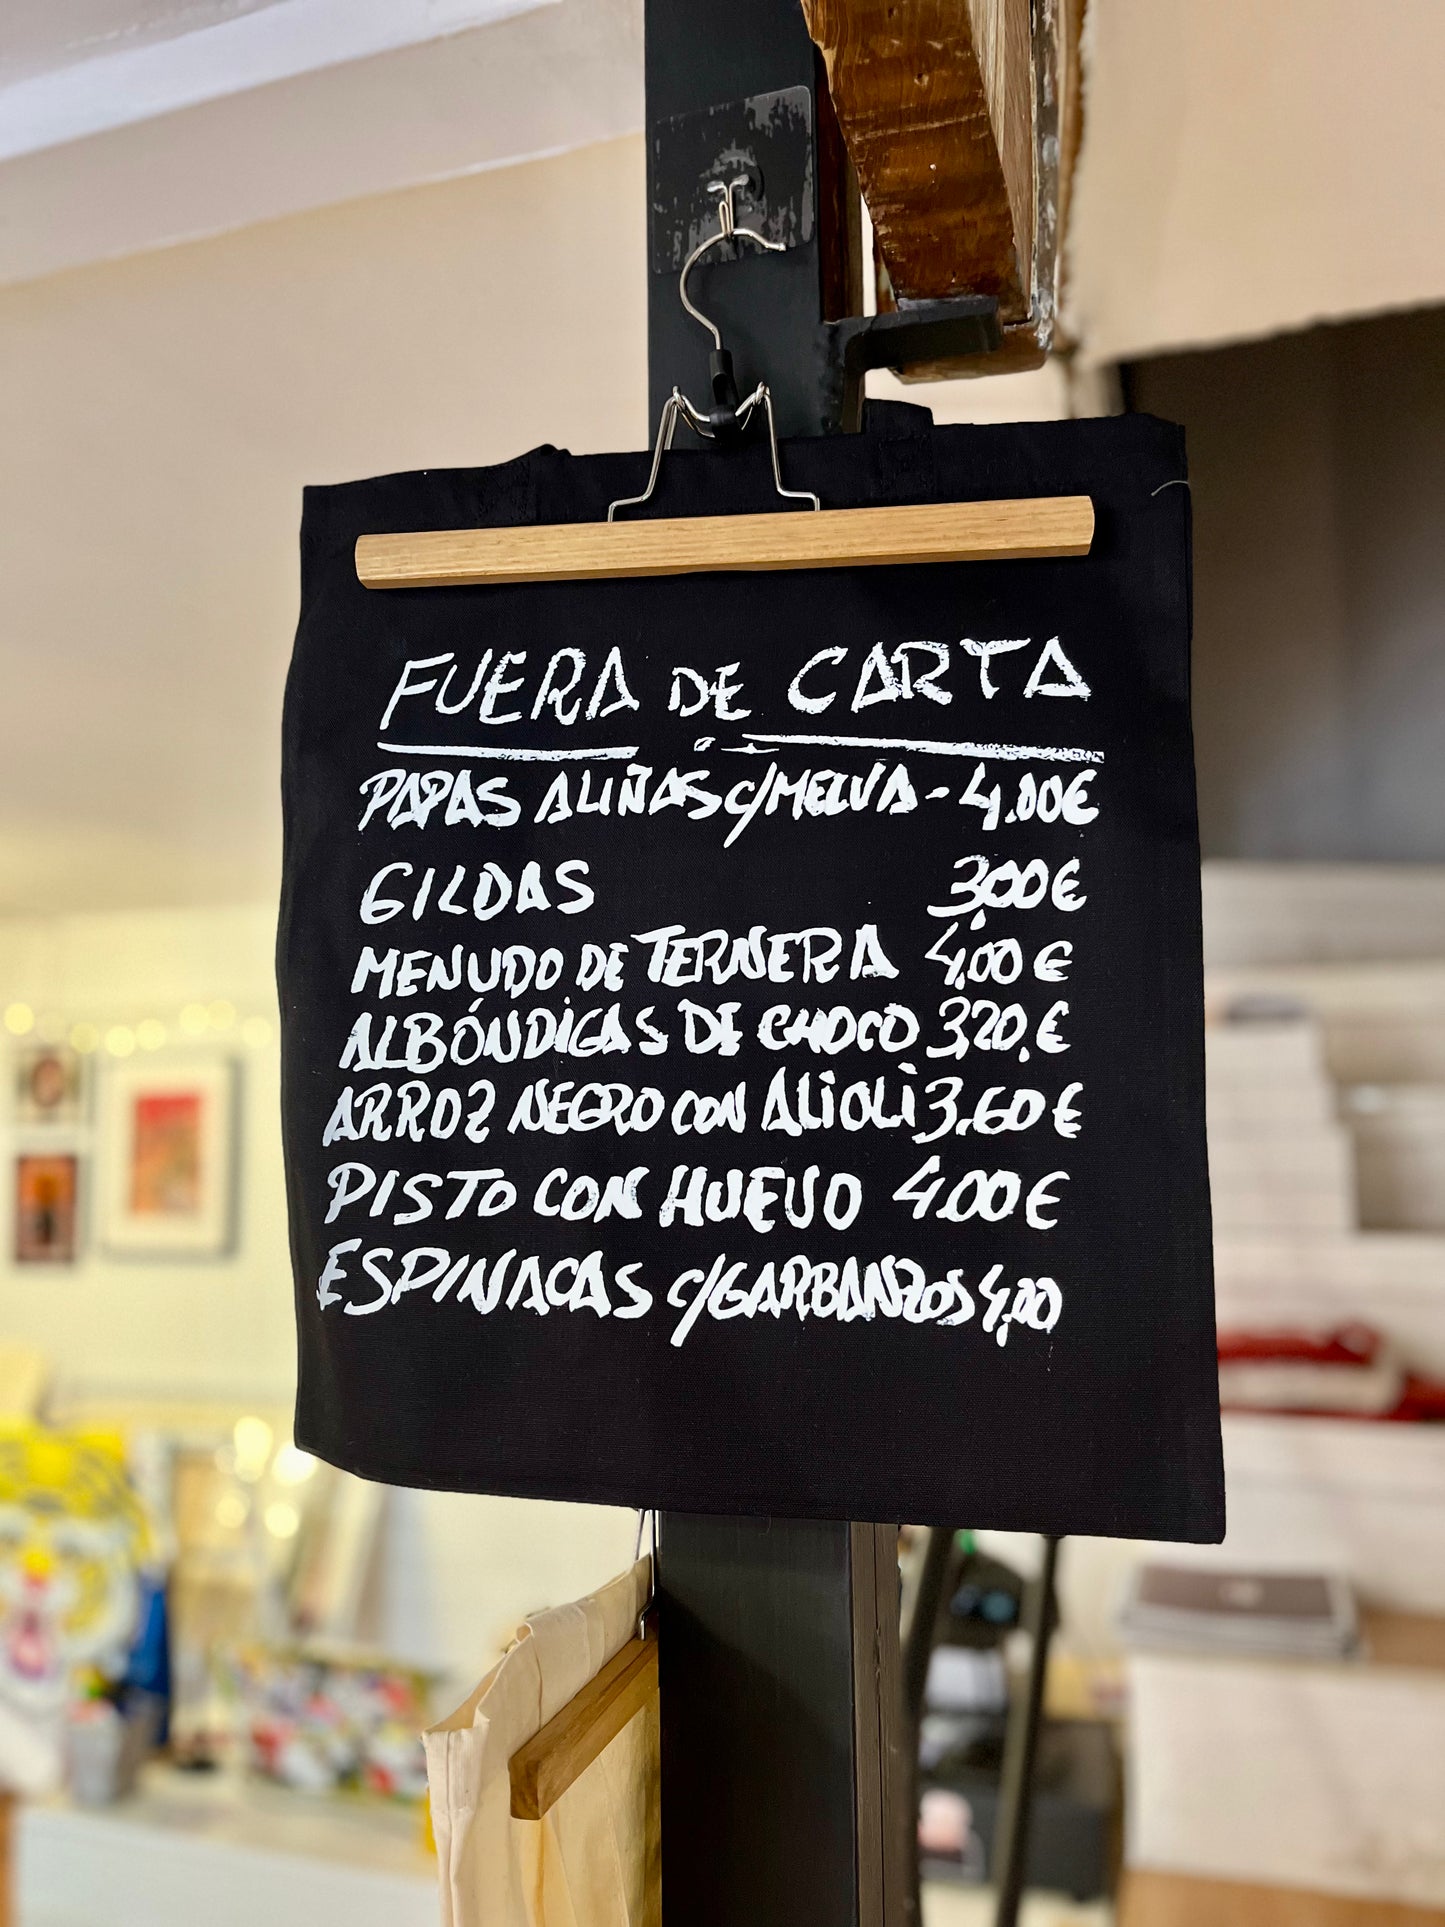 FUERA DE CARTA
PAPAS ALIÑAS C/MELVA - 4,00€
GILDAS 3,00€
MENUDO DE TERNERA 4,00€
ALBÓNDIGAS DE CHOCO 3,20,€
ARROZ NEGRO CON ALIOLI 3,60€
PISTO CON HUEVO 4,00€
ESPINACAS C/GARBANZOS 4,00